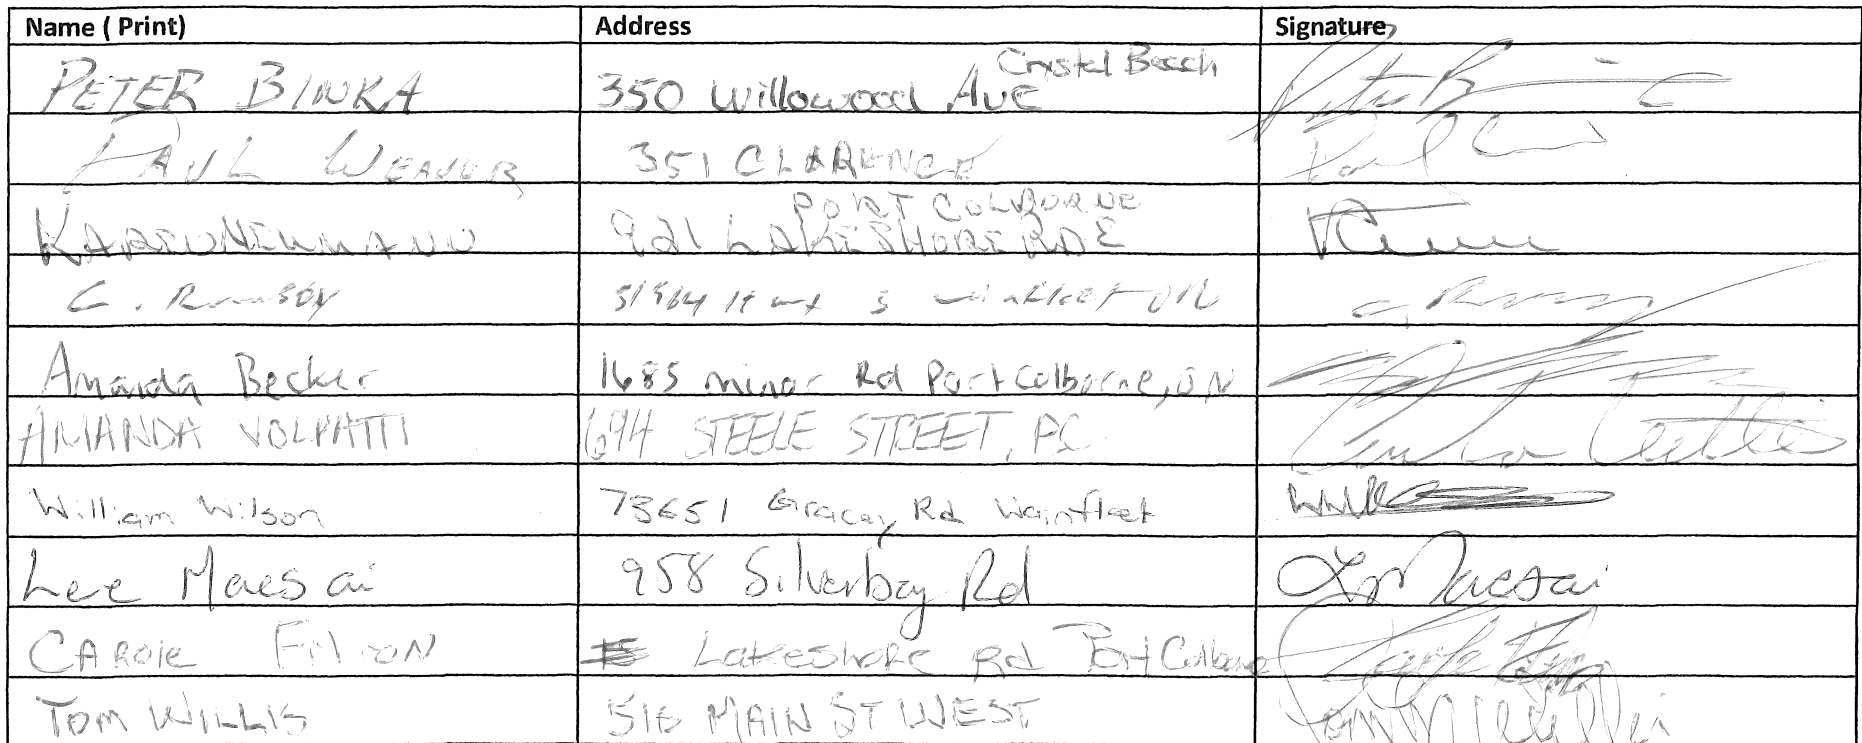 Name ( Print) Address Signature
PETER BINKA 350 Willowood AVE Crystal Beach Peter B
PAUL WEAVER 351 CLARENCE Paul
KAREN NEUMANN 921 LAKESHORE RD E PORT COLBORNE
C. Rumsby Hwy 3 C Rumsby
Amanda Becker 1685 minor Rd Port Colborne, ON
AMANDA VOLPATTI 694 STEELE STREET, PC.
William Wilson 73651 Gracey Rd Wainfleet Will
Lee Macsai 958 Silverbay Rd L Macsai
CAROLE Filion Lakeshore Rd Port Colborne
TOM WILLIS 516 MAIN ST WEST Tom Willis